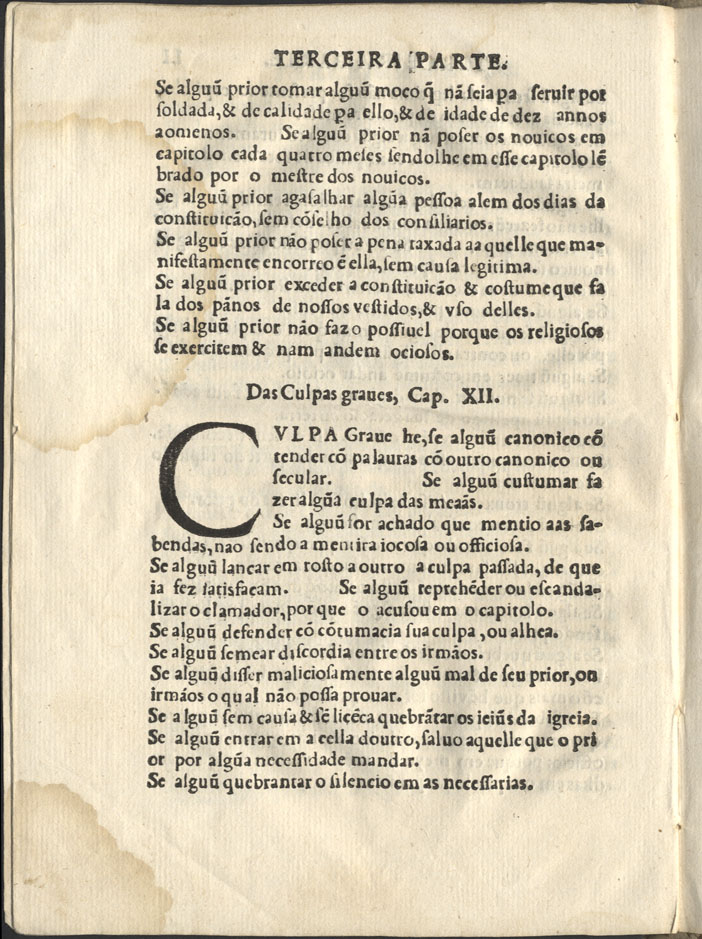 TERCEIRA PARTE.
Se alguũ prior tomar alguũ moco q̃ nã seia pa seruir por
soldada,& de calidade pa ello,& de idade de dez annos
aomenos. Se alguũ prior nã poser os nouicos em
capitolo cada quatro meses sendolhe em esse capitolo lẽ
brado por o mestre dos nouicos.
Se alguũ prior agasalhar algũa pessoa alem dos dias da
constituicão,sem cõselho dos consiliarios.
Se alguũ prior não poser a pena taxada aa quelle que ma-
nifestamente encorreo ẽ ella,sem causa legitima.
Se alguũ prior exceder a constituicão & costume que fa
la dos pãnos de nossos vestidos,& vso delles.
Se alguũ prior não faz o possiuel porque os religiosos
se exercitem & nam andem ociosos.
Das Culpas graues, Cap. XII.
CVLPA Graue he,se alguũ canonico cõ
tender cõ palauras cõ outro canonico ou
secular. Se alguũ custumar fa
zer algũa culpa das meaãs.
Se alguũ for achado que mentio aas sa-
bendas,nao sendo a mentira iocosa ou officiosa.
Se alguũ lancar em rosto a outro a culpa passada, de que
ia fez satisfacam. Se alguũ reprehẽder ou escanda-
lizar o clamador,por que o acusou em o capitolo.
Se alguũ defender cõ cõtumacia sua culpa ,ou alhea.
Se alguũ semear discordia entre os irmãos.
Se alguũ disser maliciosamente alguũ mal de seu prior,ou
irmãos o qual não possa prouar.
Se alguũ sem causa & sẽ licẽca quebrãtar os ieiũs da igreia.
Se alguũ entrar em a cella doutro,saluo aquelle que o pri
or por algũa necessidade mandar.
Se alguũ quebrantar o silencio em as necessarias.